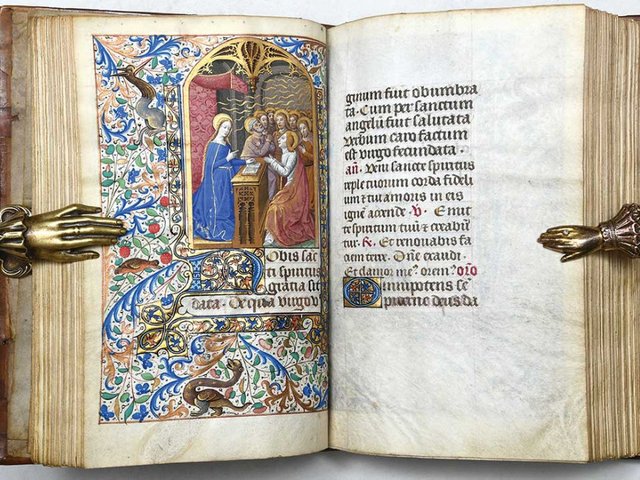 Nobis sac
ti spiritus
gratia sit
data. De qua virgo v
ginum fuit obumbra
ta. Cum per sanctum
angelū fuit salutata
Verbum caro factum
est virgo fecundata.
añ. Veni sancte spiritus
reple tuorum corda fideli
um et tui amoris in eis
ignē accende. V. Emit
te spiritum tuū et creabūt
tur. R. Et renovabis fa
ciem terre. Dñe exaudi.
Et clamor meꝰ. oremꝰ. oro
Omnipotens se
piterne deus da